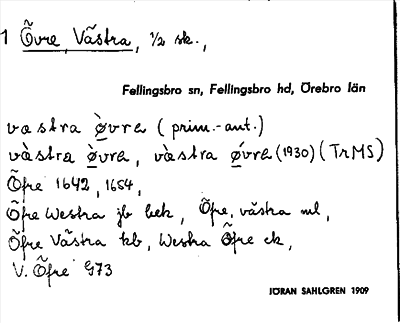 1 Õvre, Västra, 1/2 sk.,
Fellingsbro sn, Fellingsbro hd, Örebro län
vastra òvre (prim.-ant.)
vàstra òvre, vàstra óvre (1930) (TrMS)
Õfre 1642, 1654,
Õfre Westra jb bek, Õfre, västra ml,
Õfre Västra kb, Westra Õfre ck,
V. Õfre G73
JÖRAN SAHLGREN 1909